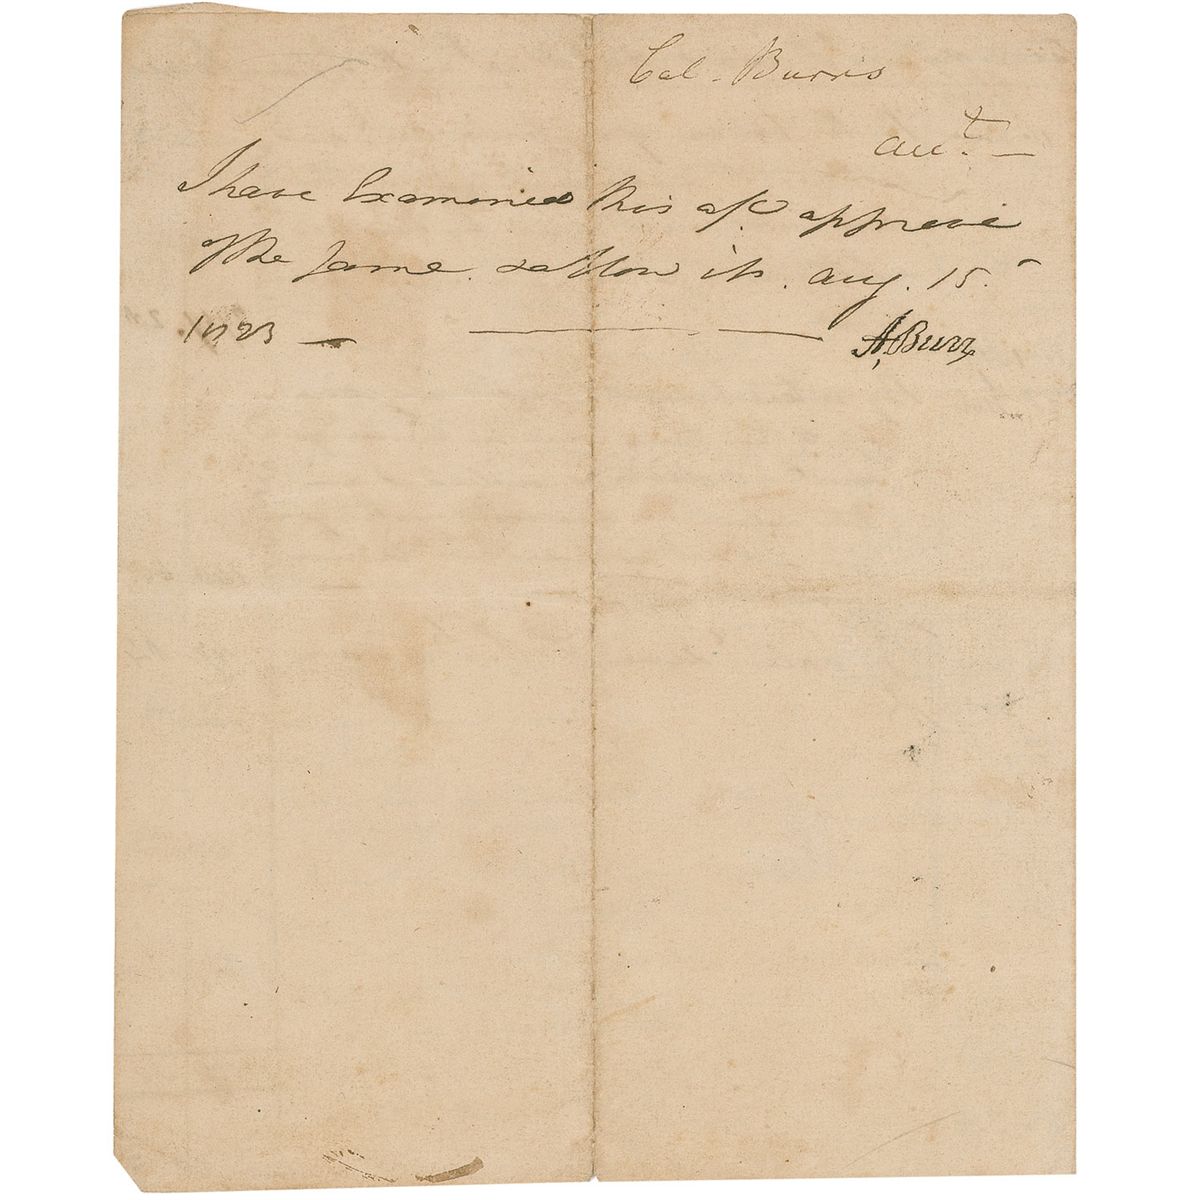 Col. Burrs
acct. —
I have Examined this a/c approve
of the same & allow it. Aug. 15
1823 —
A, Burr